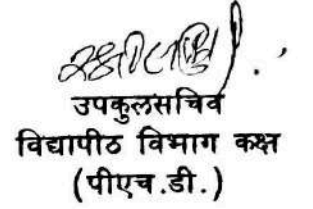 उपकुलसचिव
विद्यापीठ विभाग कक्ष
(पीएच.डी.)